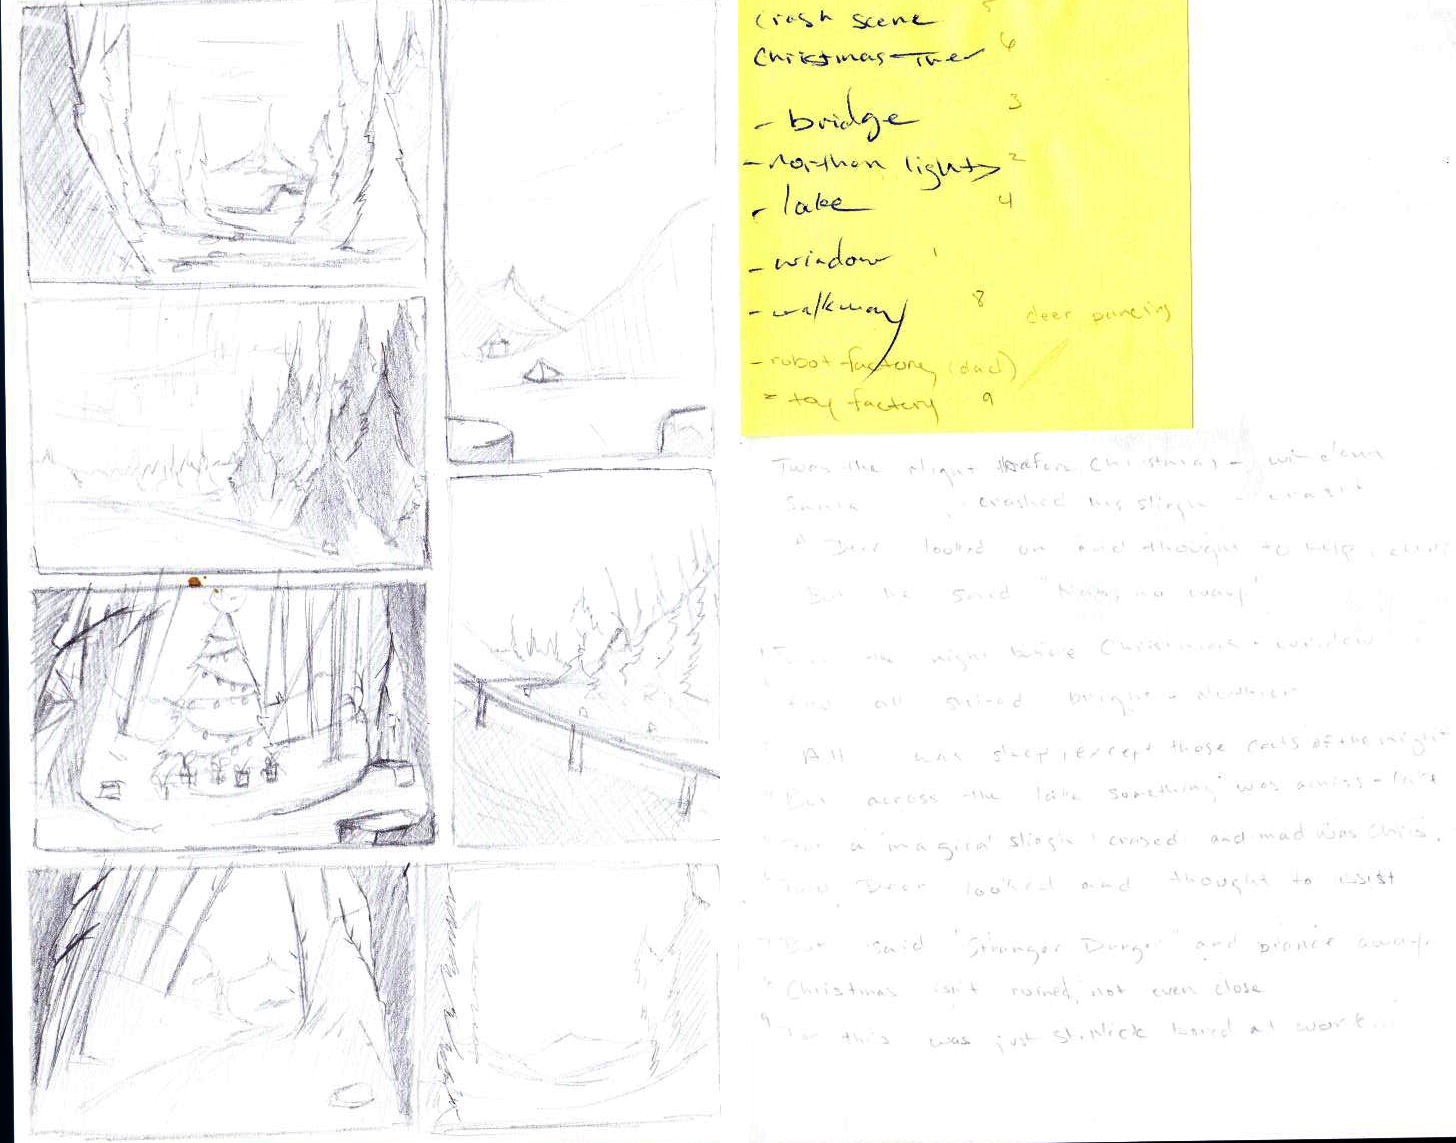 crash scene 5
Christmas Tree 6
- bridge 3
- northern lights 2
- lake 4
- window 1
- walkway 8 deer prancing
- robot factory (dad)
- toy factory 9
Twas the Night Before Christmas - window
Santa crashed his sleigh - crash
A Deer looked on and thought to help,
But he said "Nope, no way"
the night before Christmas - window
all shined bright -
All was sleep, except those of the night
But across the lake something was amiss - lake
a magical sleigh crashed and mad was Chris.
Deer looked and thought to assist
7 But said "Stranger Danger" and prance away.
Christmas isn't ruined, not even close
9 For this was just St. Nick bored at work...